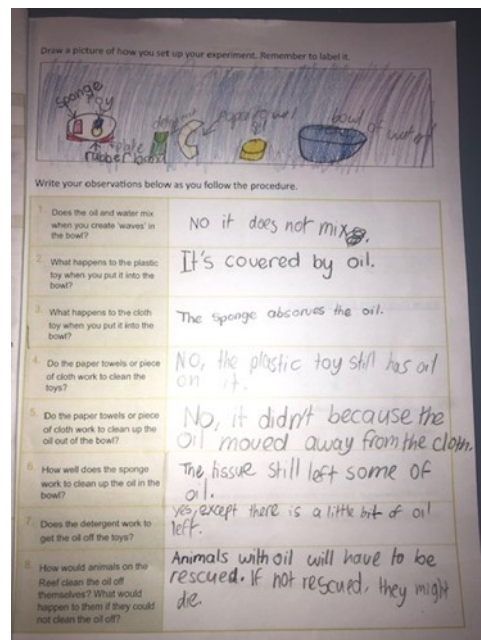 Draw a picture of how you set up your experiment. Remember to label it.
sponge
toy
paper towel
oil
bowl
of water
plate
rubber band
Write your observations below as you follow the procedure.
1. Does the oil and water mix
when you create 'waves' in
the bowl?
NO it does not mix.
2. What happens to the plastic
toy when you put it into the
bowl?
It's covered by oil.
3. What happens to the cloth
toy when you put it into the
bowl?
The sponge absorves the oil.
4. Do the paper towels or piece
of cloth work to clean the
toys?
No, the plastic toy still has oil
on it.
5. Do the paper towels or piece
of cloth work to clean up the
oil out of the bowl?
No, it didn't because the
oil moved away from the cloth.
6. How well does the sponge
work to clean up the oil in the
bowl?
The tissue still left some of
oil.
7. Does the detergent work to
get the oil off the toys?
yes, except there is a little bit of oil
left.
8. How would animals on the
Reef clean the oil off
themselves? What would
happen to them if they could
not clean the oil off?
Animals with oil will have to be
rescued. If not rescued, they might
die.